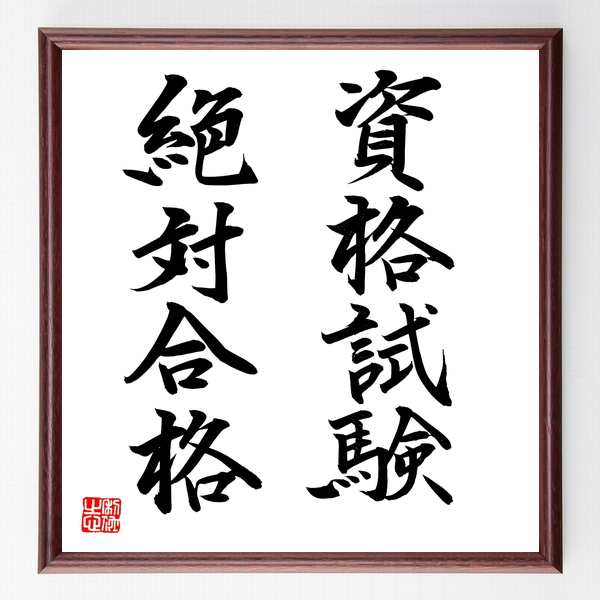 資格試験
絶対合格